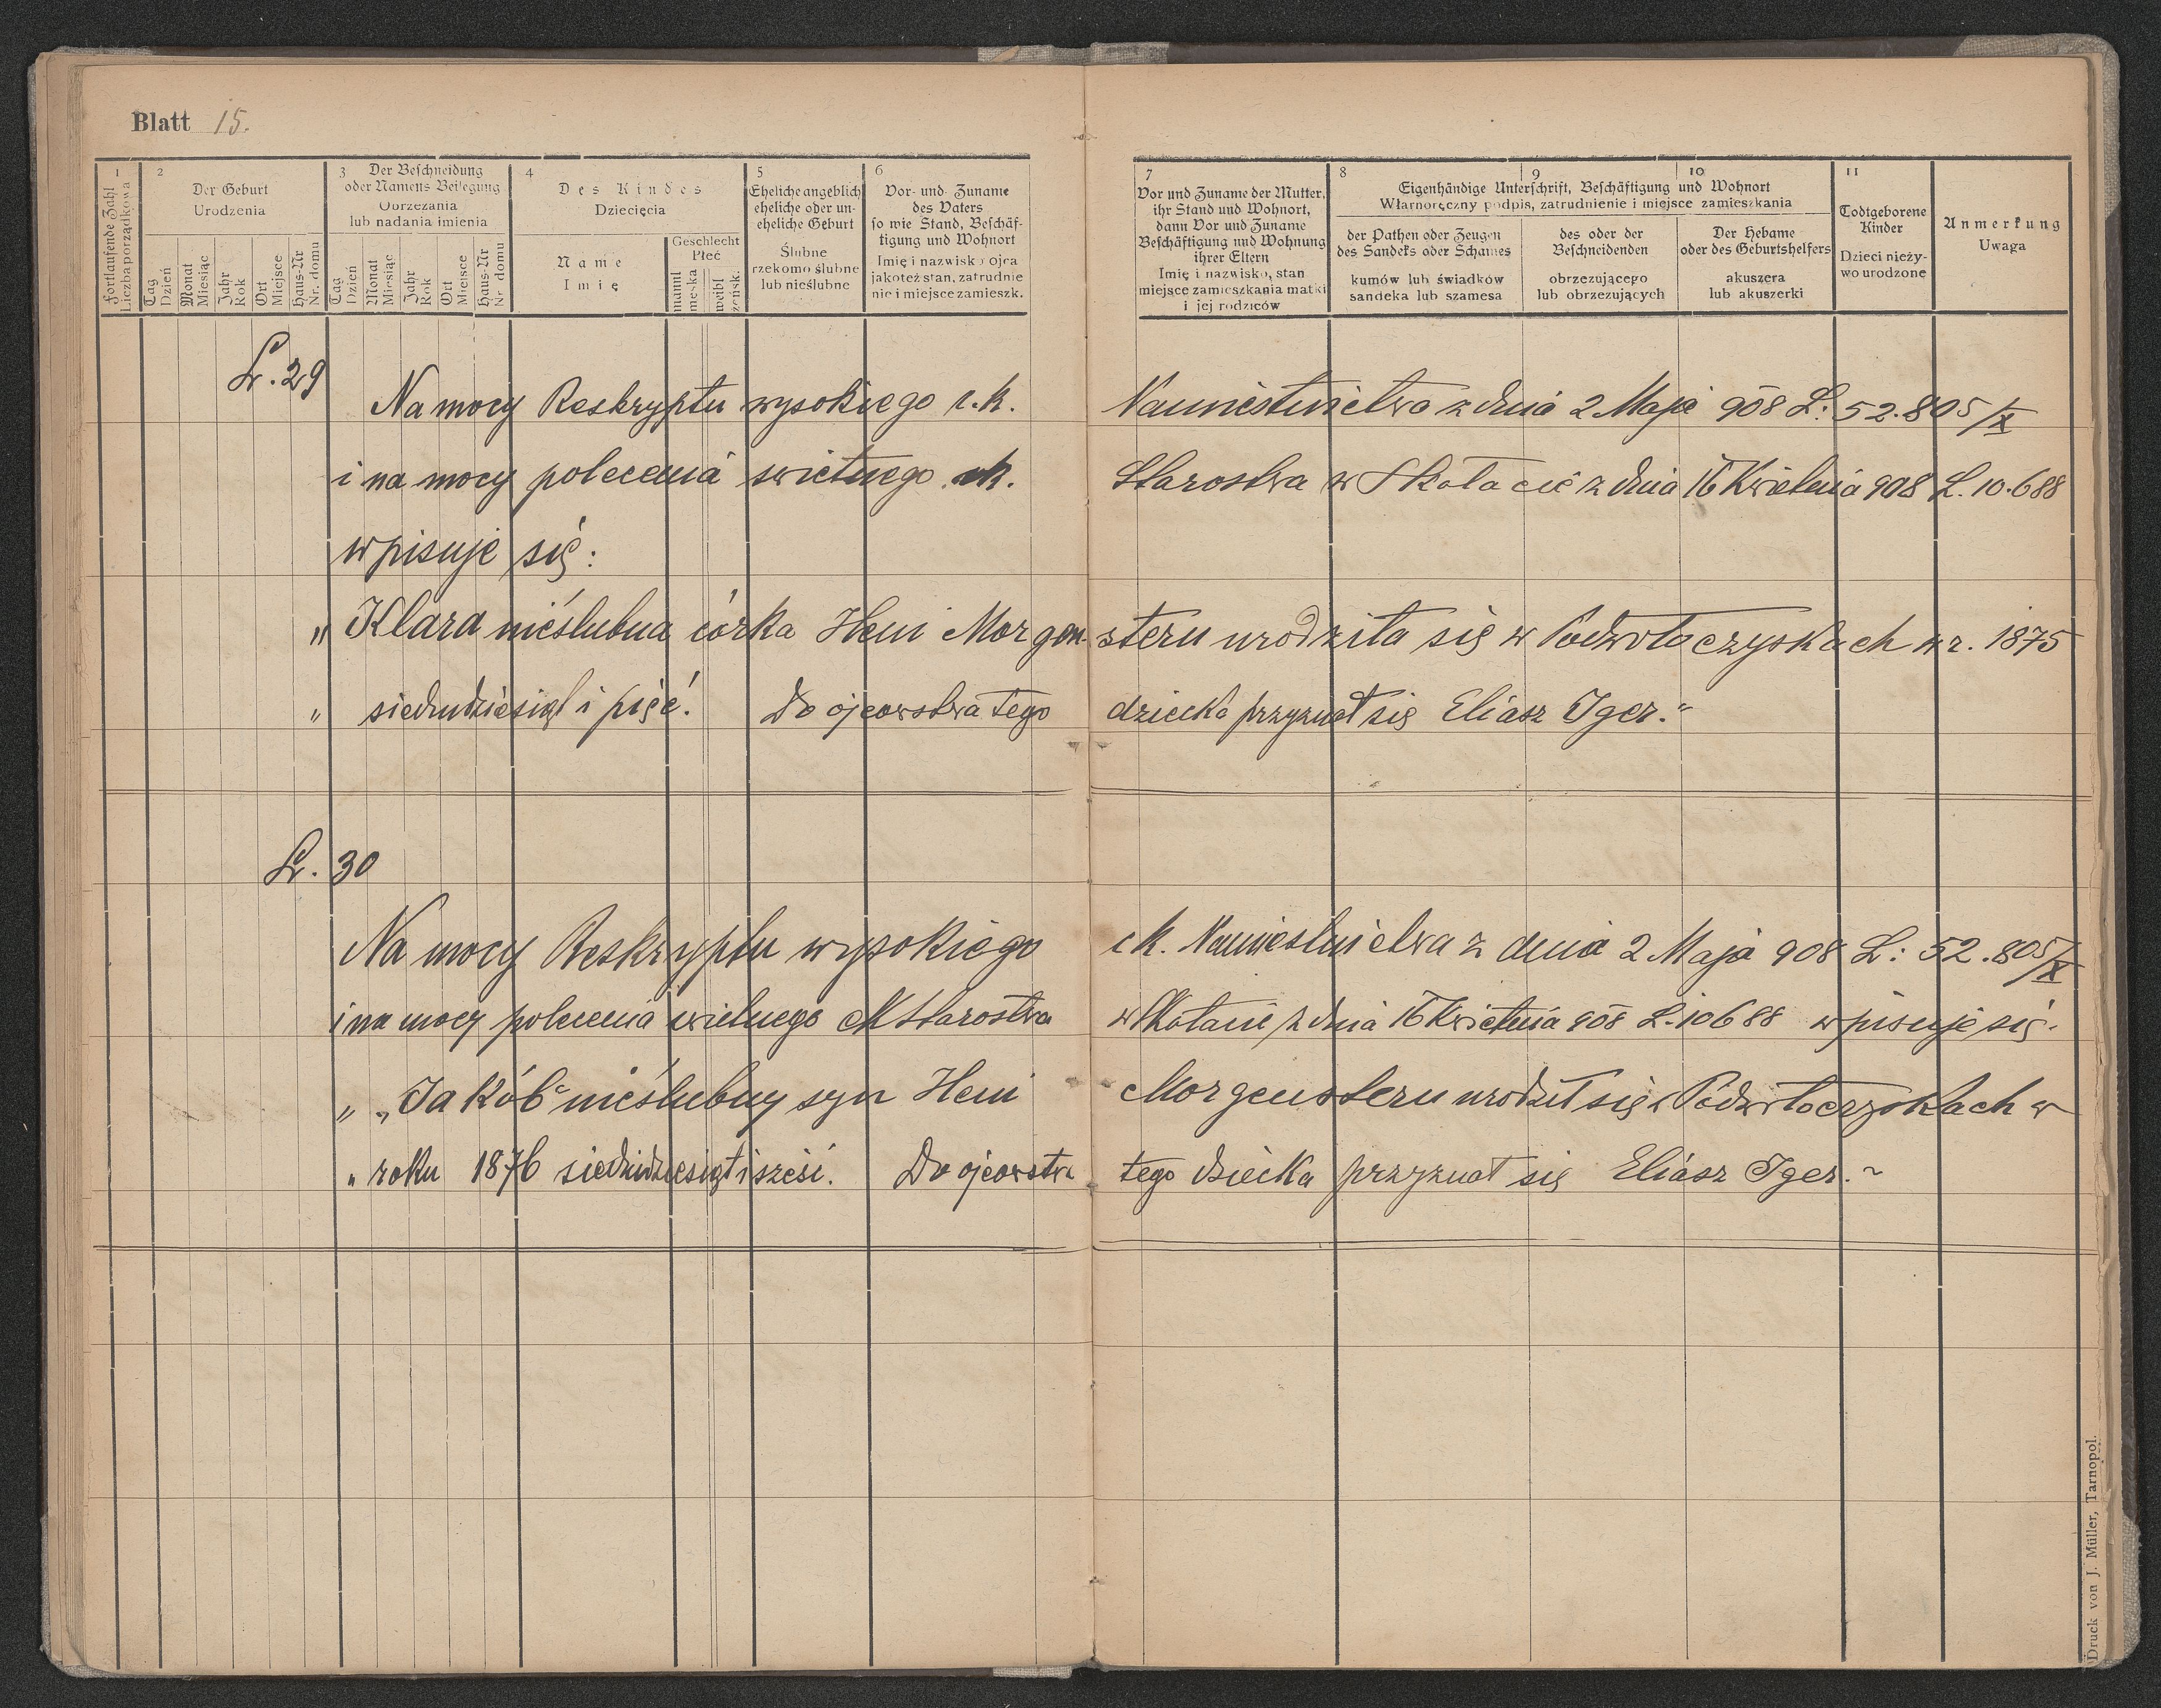 Blatt 15.
1
Fortlaufende Zahl
Liczba porządkowa
2
Der Geburt
Urodzenia
Tag
Dzień
Monat
Miesiąc
Jahr
Rok
Ort
Miejsce
Haus-Nr
Nr. domu
3
Der Beschneidung
oder Namens Beilegung
Obrzezania
lub nadania imienia
Tag
Dzień
Monat
Miesiąc
Jahr
Rok
Ort
Miejsce
Haus-Nr
Nr. domu
4
Des Kindes
Dziecięcia
Name
Imię
Geschlecht
Płeć
männl
męska
weibl
żeńsk.
5
Eheliche angeblich
eheliche oder un-
eheliche Geburt
Ślubne
rzekomo ślubne
lub nieślubne
6
Vor- und Zuname
des Vaters
so wie Stand, Beschäf-
tigung und Wohnort
Imię i nazwisko ojca
jakoteż stan, zatrudnie
nie i miejsce zamieszk.
7
Vor und Zuname der Mutter,
ihr Stand und Wohnort,
dann Vor und Zuname
Beschäftigung und Wohnung
ihrer Eltern
Imię i nazwisko, stan
miejsce zamieszkania matki
i jej rodziców
8 9 10
Eigenhändige Unterschrift, Beschäftigung und Wohnort
Własnoręczny podpis, zatrudnienie i miejsce zamieszkania
der Pathen oder Zeugen
des Sandeks oder Schames
kumów lub świadków
sandeka lub szamesa
des oder der
Beschneidenden
obrzezującego
lub obrzezujących
Der Hebame
oder des Geburtshelfers
akuszera
lub akuszerki
11
Todtgeborene
Kinder
Dzieci nieży-
wo urodzone
Anmerkung
Uwaga
L. 29
Na mocy Reskryptu wysokiego c.k. Namiestnictwa z dnia 2 Maja 908 L: 52.805/X
i na mocy polecenia swietnego ck. Starostwa w Skałacie z dnia 16 Kwietnia 908 L. 10.688
wpisuje się:
„ Klara nieślubna córka Heni Morgenstern urodziła się w Podwołoczyskach w r. 1875
„ siedmdziesiąt i pięć. Do ojcowstwa tego dziecka przyznał się Eliasz Iger."
L. 30
Na mocy Reskryptu wysokiego c k. Namiestnictwa z dnia 2 Maja 908 L: 52.805/X
i na mocy polecenia swietnego ck Starostwa w Skałacie z dnia 16 Kwietnia 908 L. 10688 wpisuje się.
„ „Jakób" nieślubny syn Heni Morgenstern urodził się w Podwołoczyskach w
„ roku 1876 siedmdziesiąt i sześć. Do ojcowstwa tego dziecka przyznał się Eliasz Iger.~
Druck von J. Müller, Tarnopol.